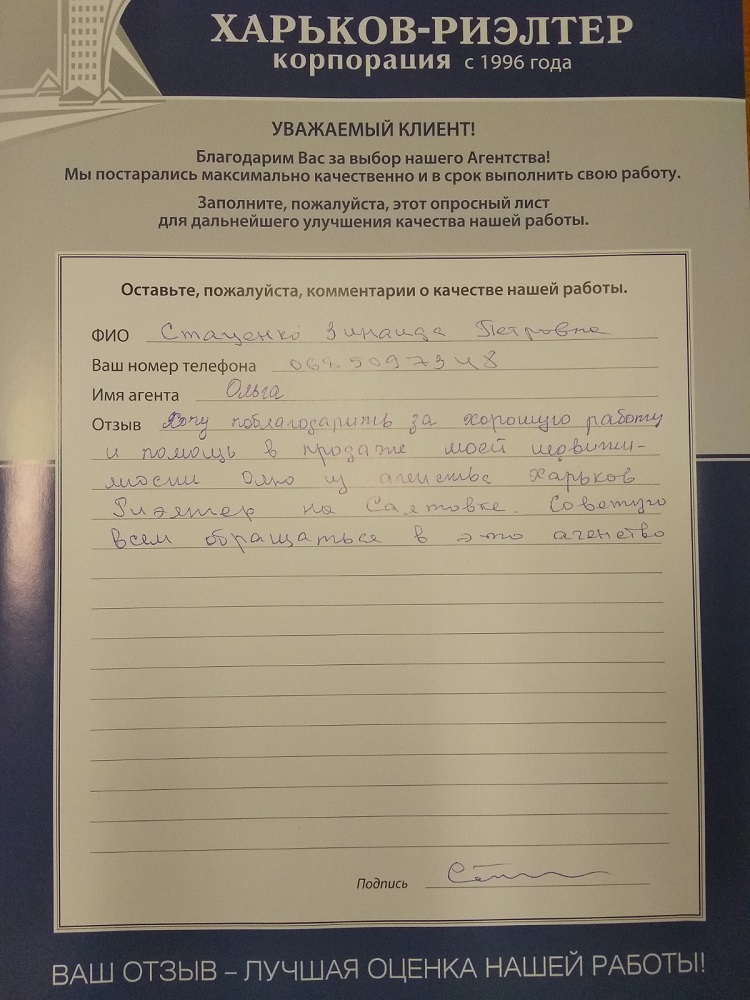 ХАРЬКОВ-РИЭЛТЕР
корпорация с 1996 года
УВАЖАЕМЫЙ КЛИЕНТ!
Благодарим Вас за выбор нашего Агентства!
Мы постарались максимально качественно и в срок выполнить свою работу.
Заполните, пожалуйста, этот опросный лист
для дальнейшего улучшения качества нашей работы.
Оставьте, пожалуйста, комментарии о качестве нашей работы.
ФИО Стаценко Зинаида Петровна
Ваш номер телефона
Имя агента Ольга
Отзыв Хочу поблагодарить за хорошую работу
и помощь в продаже моей недвижи-
мости из агенства Харьков
Риэлтер на Салтовке. Советую
всем обращаться в это агенство
Подпись
ВАШ ОТЗЫВ – ЛУЧШАЯ ОЦЕНКА НАШЕЙ РАБОТЫ!